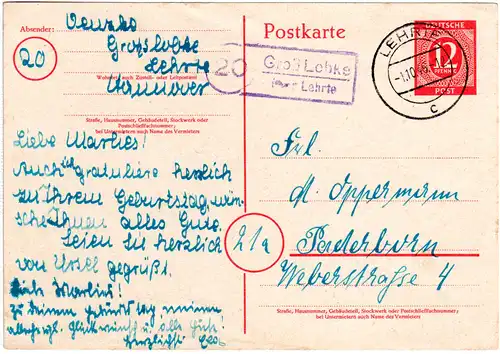 Absender:
Venzke
20
Großlobke
Lehrte
Wohnort, auch Zustell- oder Leitpostamt
Hannover
Straße, Hausnummer, Gebäudeteil, Stockwerk oder
Postschließfachnummer;
bei Untermietern auch Name des Vermieters
Postkarte
20
Groß Lobke
Lehrte
LEHRTE
c
DEUTSCHE
12
PFENNIG
POST
Liebe Marlies!
Auch ich gratuliere herzlich
zu Ihrem Geburtstag, wün-
sche Ihnen alles Gute.
Seien Sie herzlich
von Ursel gegrüßt.
Marlies!
Zu Deinem
Glückwunsch u. alles Gute
Herzlichst
Frl.
M. Oppermann
21a
Paderborn
Weberstrasse 4
Straße, Hausnummer, Gebäudeteil, Stockwerk oder Postschließfachnummer;
bei Untermietern auch Name des Vermieters